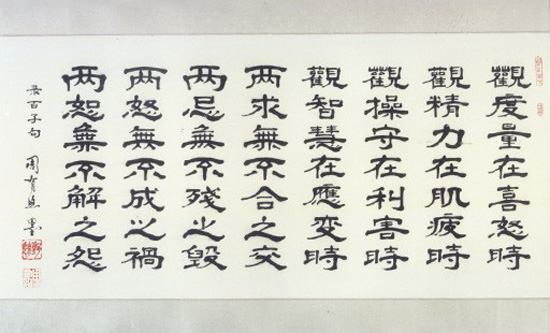 觀度量在喜怒時
觀精力在肌疲時
觀操守在利害時
觀智慧在應变時
两求無不合之交
两忌無不殘之毀
两怒無不成之禍
两恕無不解之怨
录百子句